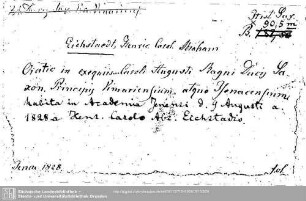 Hist. Sax.
90,5 m
Eichstaedt, Henric. Carol. Abraham
Oratio in exequiis Caroli Augusti Magni Ducis Sa-
xon. Principis Vimariensium atque Isenacensium
habita in Academia Jenensi d. Augusti a.
1828 a Henr. Carolo Abr. Eichstadio.
Jenae 1828.
fol.
Sächsische Landesbibliothek -
Staats- und Universitätsbibliothek Dresden